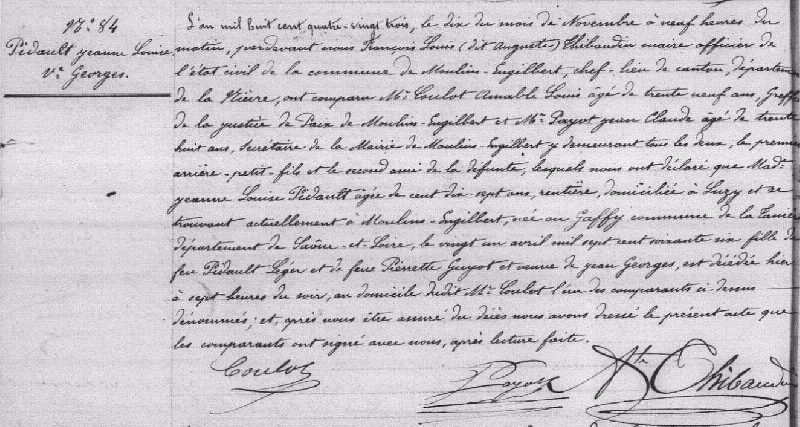 N.o 84
Pidault Jeanne Louise
Ve Georges.
L'an mil huit cent quatre-vingt trois, le dix du mois de Novembre à neuf heures du
matin, pardevant nous François Louis (dit Auguste) Thibaudin maire officier de
l'état civil de la commune de Moulins-Engilbert, chef-lieu de canton, département
de la Nièvre, ont comparu Mr Coulot Amable Louis âgé de trente neuf ans, Greffier
de la justice de Paix de Moulins-Engilbert et Mr Payot Jean Claude âgé de trente
huit ans, Secrétaire de la Mairie de Moulins-Engilbert y demeurant tous les deux, le premier
arrière-petit-fils et le second ami de la défunte, lesquels nous ont déclaré que Made
Jeanne Louise Pidault âgée de cent dix sept ans, rentière, domiciliée à Luzy et se
trouvant actuellement à Moulins-Engilbert, née au Gaffy commune de la Tanière
département de Saône-et-Loire, le vingt un avril mil sept cent soixante six fille de
feu Pidault Léger et de feue Pierrette Guyot et veuve de Jean Georges, est décédée hier
à sept heures du soir, au domicile dudit Mr Coulot l'un des comparants ci-dessus
dénommés; et, après nous être assuré du décès nous avons dressé le présent acte que
les comparants ont signé avec nous, après lecture faite.
Coulot Payot Ate Thibaudin